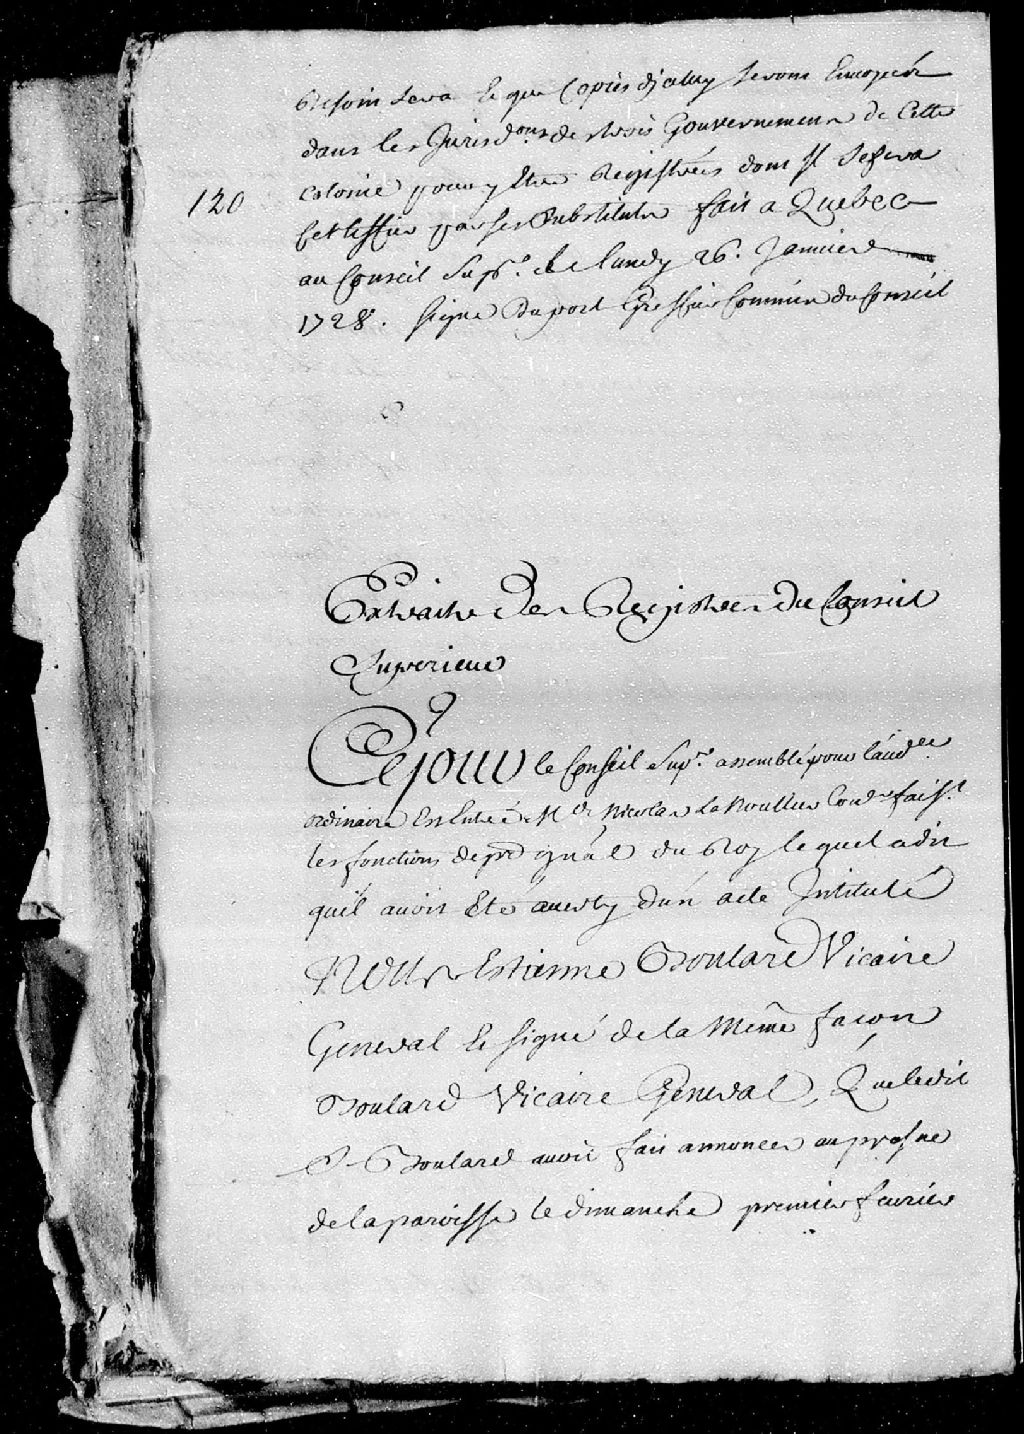 besoin sera Et que Copies d'jcelluy seront Envoyées
dans les Jurisd.ons de trois Gouvernemens de Cette
120
Colonie pour y Etre Registrées dont Il Se fera
Certiffier par ses Substituts fait a Quebec
au Conseil Sup.r le lundy 26. Janvier
1728. signé Duport Greffier Commis du Conseil
Extraits Des Registres Du Conseil
Superieur
Cejour le Conseil Sup.r assemblé pour l'aud.ce
ordinaire Est Entré M.e Nicolas Lanoullier Con.er fais.t
les fonctions de pr gnal du Roy lequel a dit
quil avoit Eté averty d'un acte Intitulé
Nous Estienne Boulard Vicaire
General Et signé de la Même façon
Boulard Vicaire General, Que ledit
S.r Boulard avoit fait annoncer au prosne
de la paroisse le dimanche premier fevrier